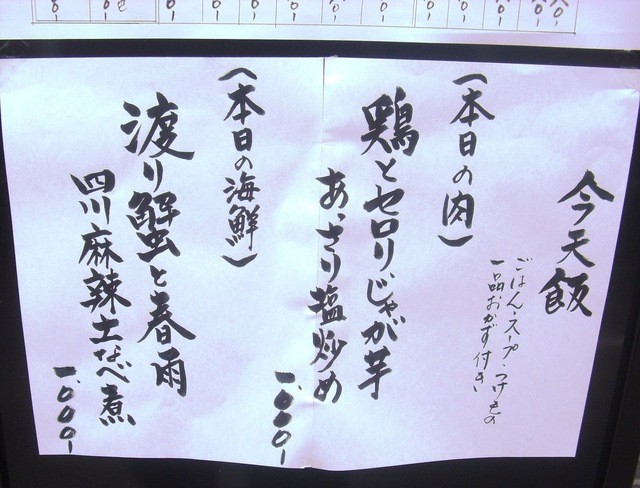 今天飯
ごはん・スープ・つけもの
一品おかず付き
(本日の肉)
鶏とセロリじゃが芋
あっさり塩炒め
一、〇〇〇-
(本日の海鮮)
渡り蟹と春雨
四川麻辣土なべ煮
一、〇〇〇-